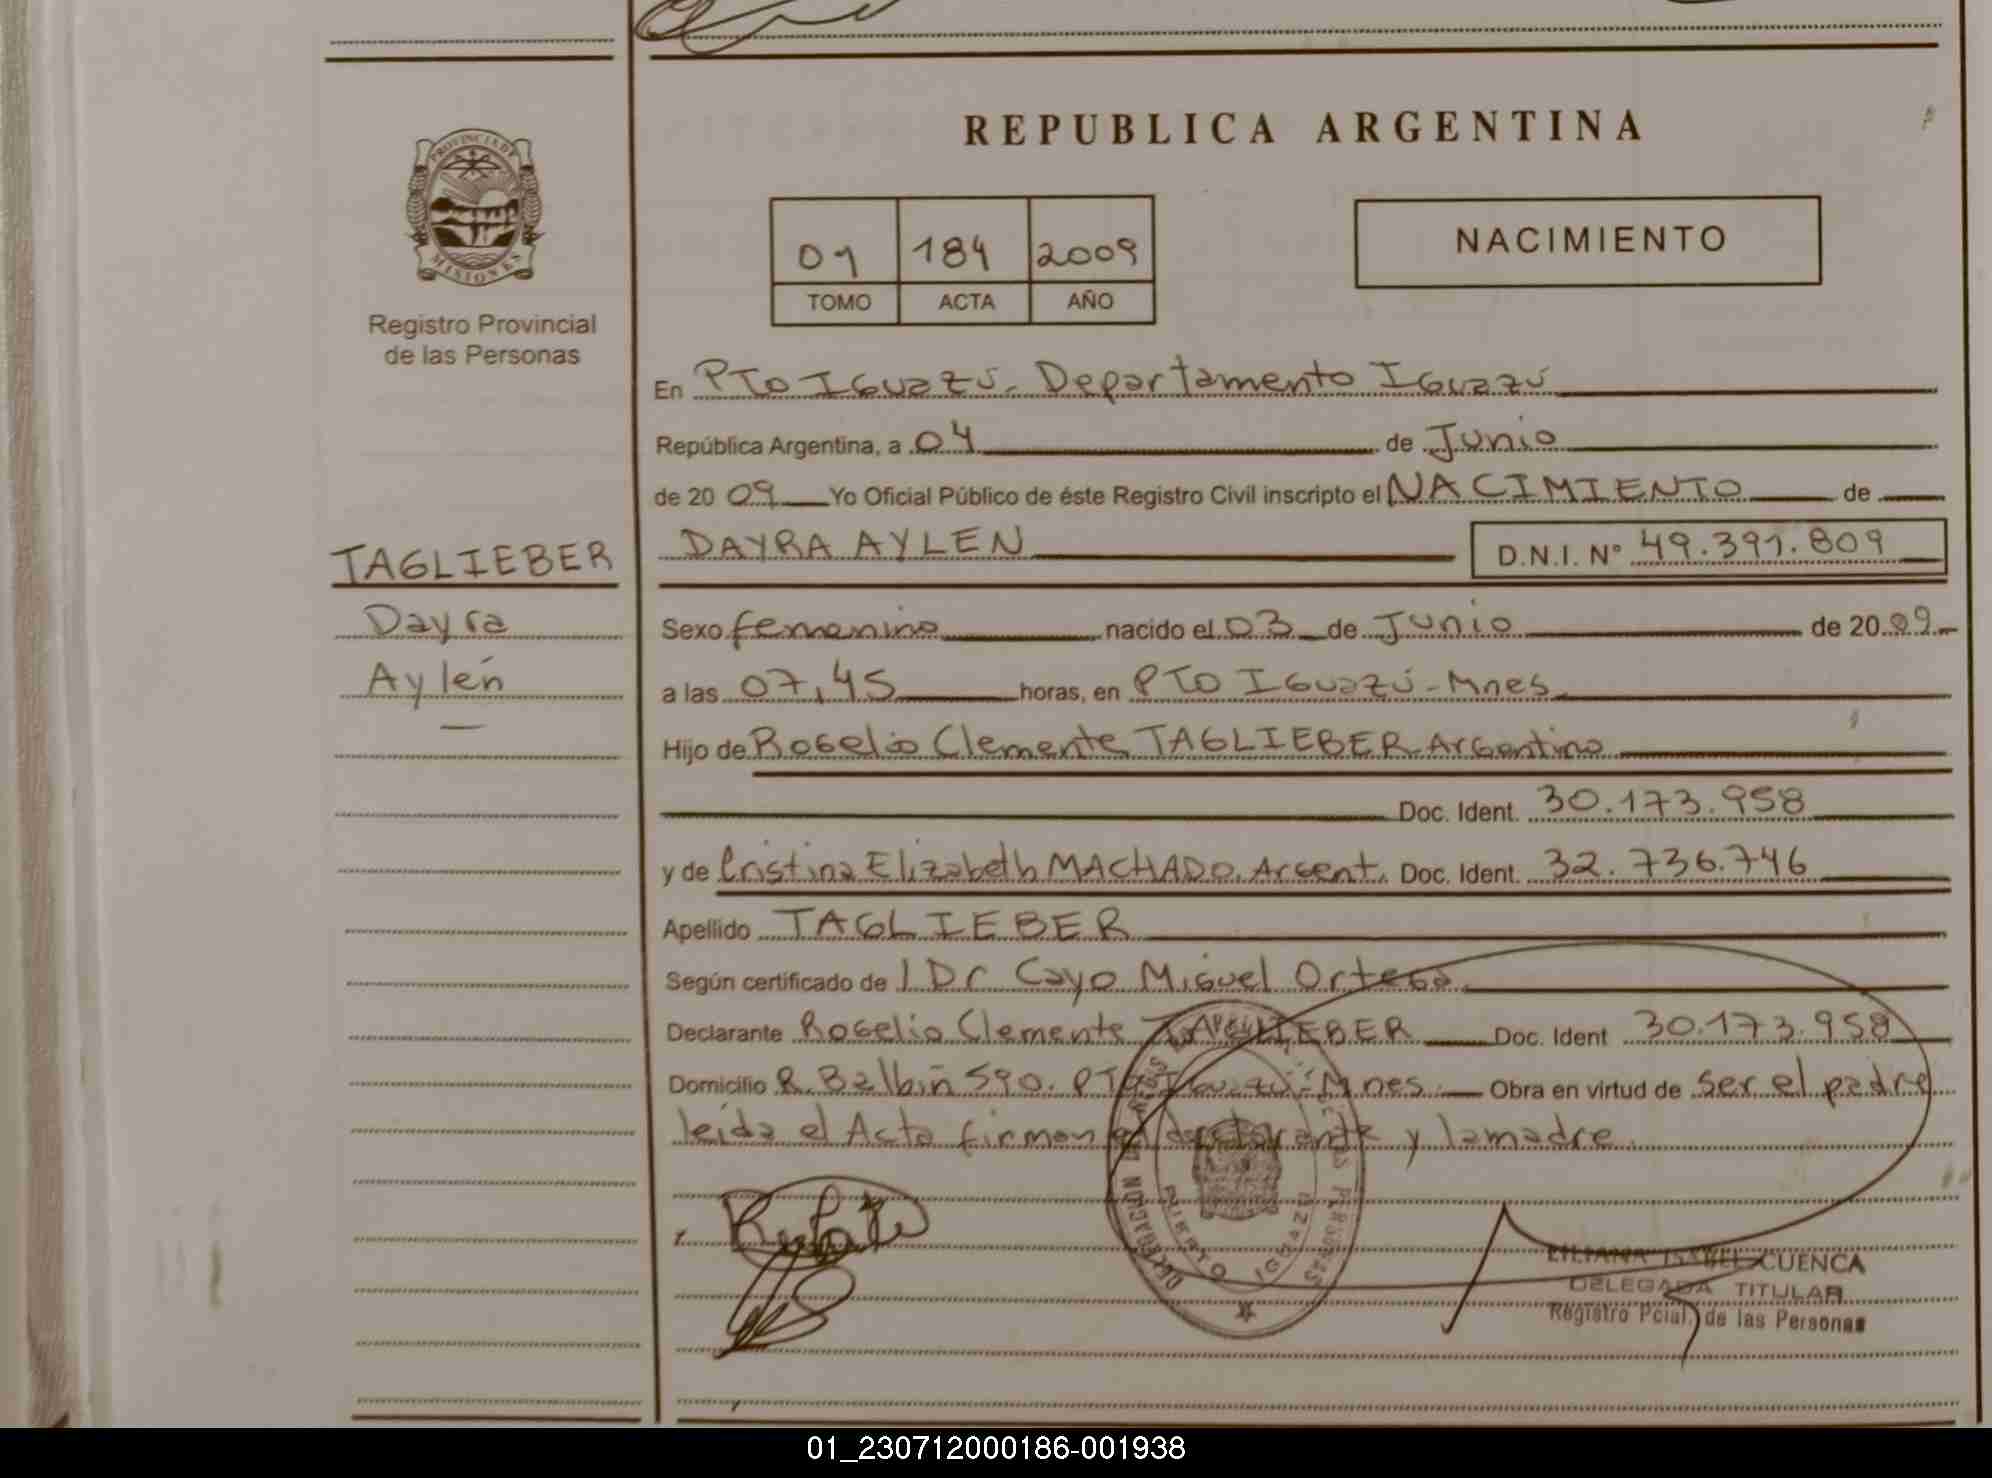 REPUBLICA ARGENTINA
PROVINCIA DE
MISIONES
Registro Provincial
de las Personas
01 184 2009
TOMO ACTA AÑO
NACIMIENTO
En PTO IGuazú. Departamento IGuazú
República Argentina, a 04 de Junio
de 2009 Yo Oficial Público de éste Registro Civil inscripto el NACIMIENTO de
TAGLIEBER
Dayra
Aylén
DAYRA AYLEN D.N.I. Nº 49.391.809
Sexo femenino nacido el 03 de Junio de 2009
a las 07,45 horas, en PTO IGuazú-Mnes
Hijo de Rogelio Clemente TAGLIEBER Argentino
Doc. Ident. 30.173.958
y de Cristina Elizabeth MACHADO. Argent. Doc. Ident. 32.736.746
Apellido TAGLIEBER
Según certificado de l Dr Cayo Miguel Ortega
Declarante Rogelio Clemente TAGLIEBER Doc. Ident 30.173.958
Domicilio R. Balbin 590. PTO IGuazú-Mnes. Obra en virtud de ser el padre
leída el Acta firman el declarante y la madre
DELEGACION PERSONAS
PUERTO IGUAZU
LILIANA ISABEL CUENCA
DELEGADA TITULAR
Registro Pcial. de las Personas
01_230712000186-001938